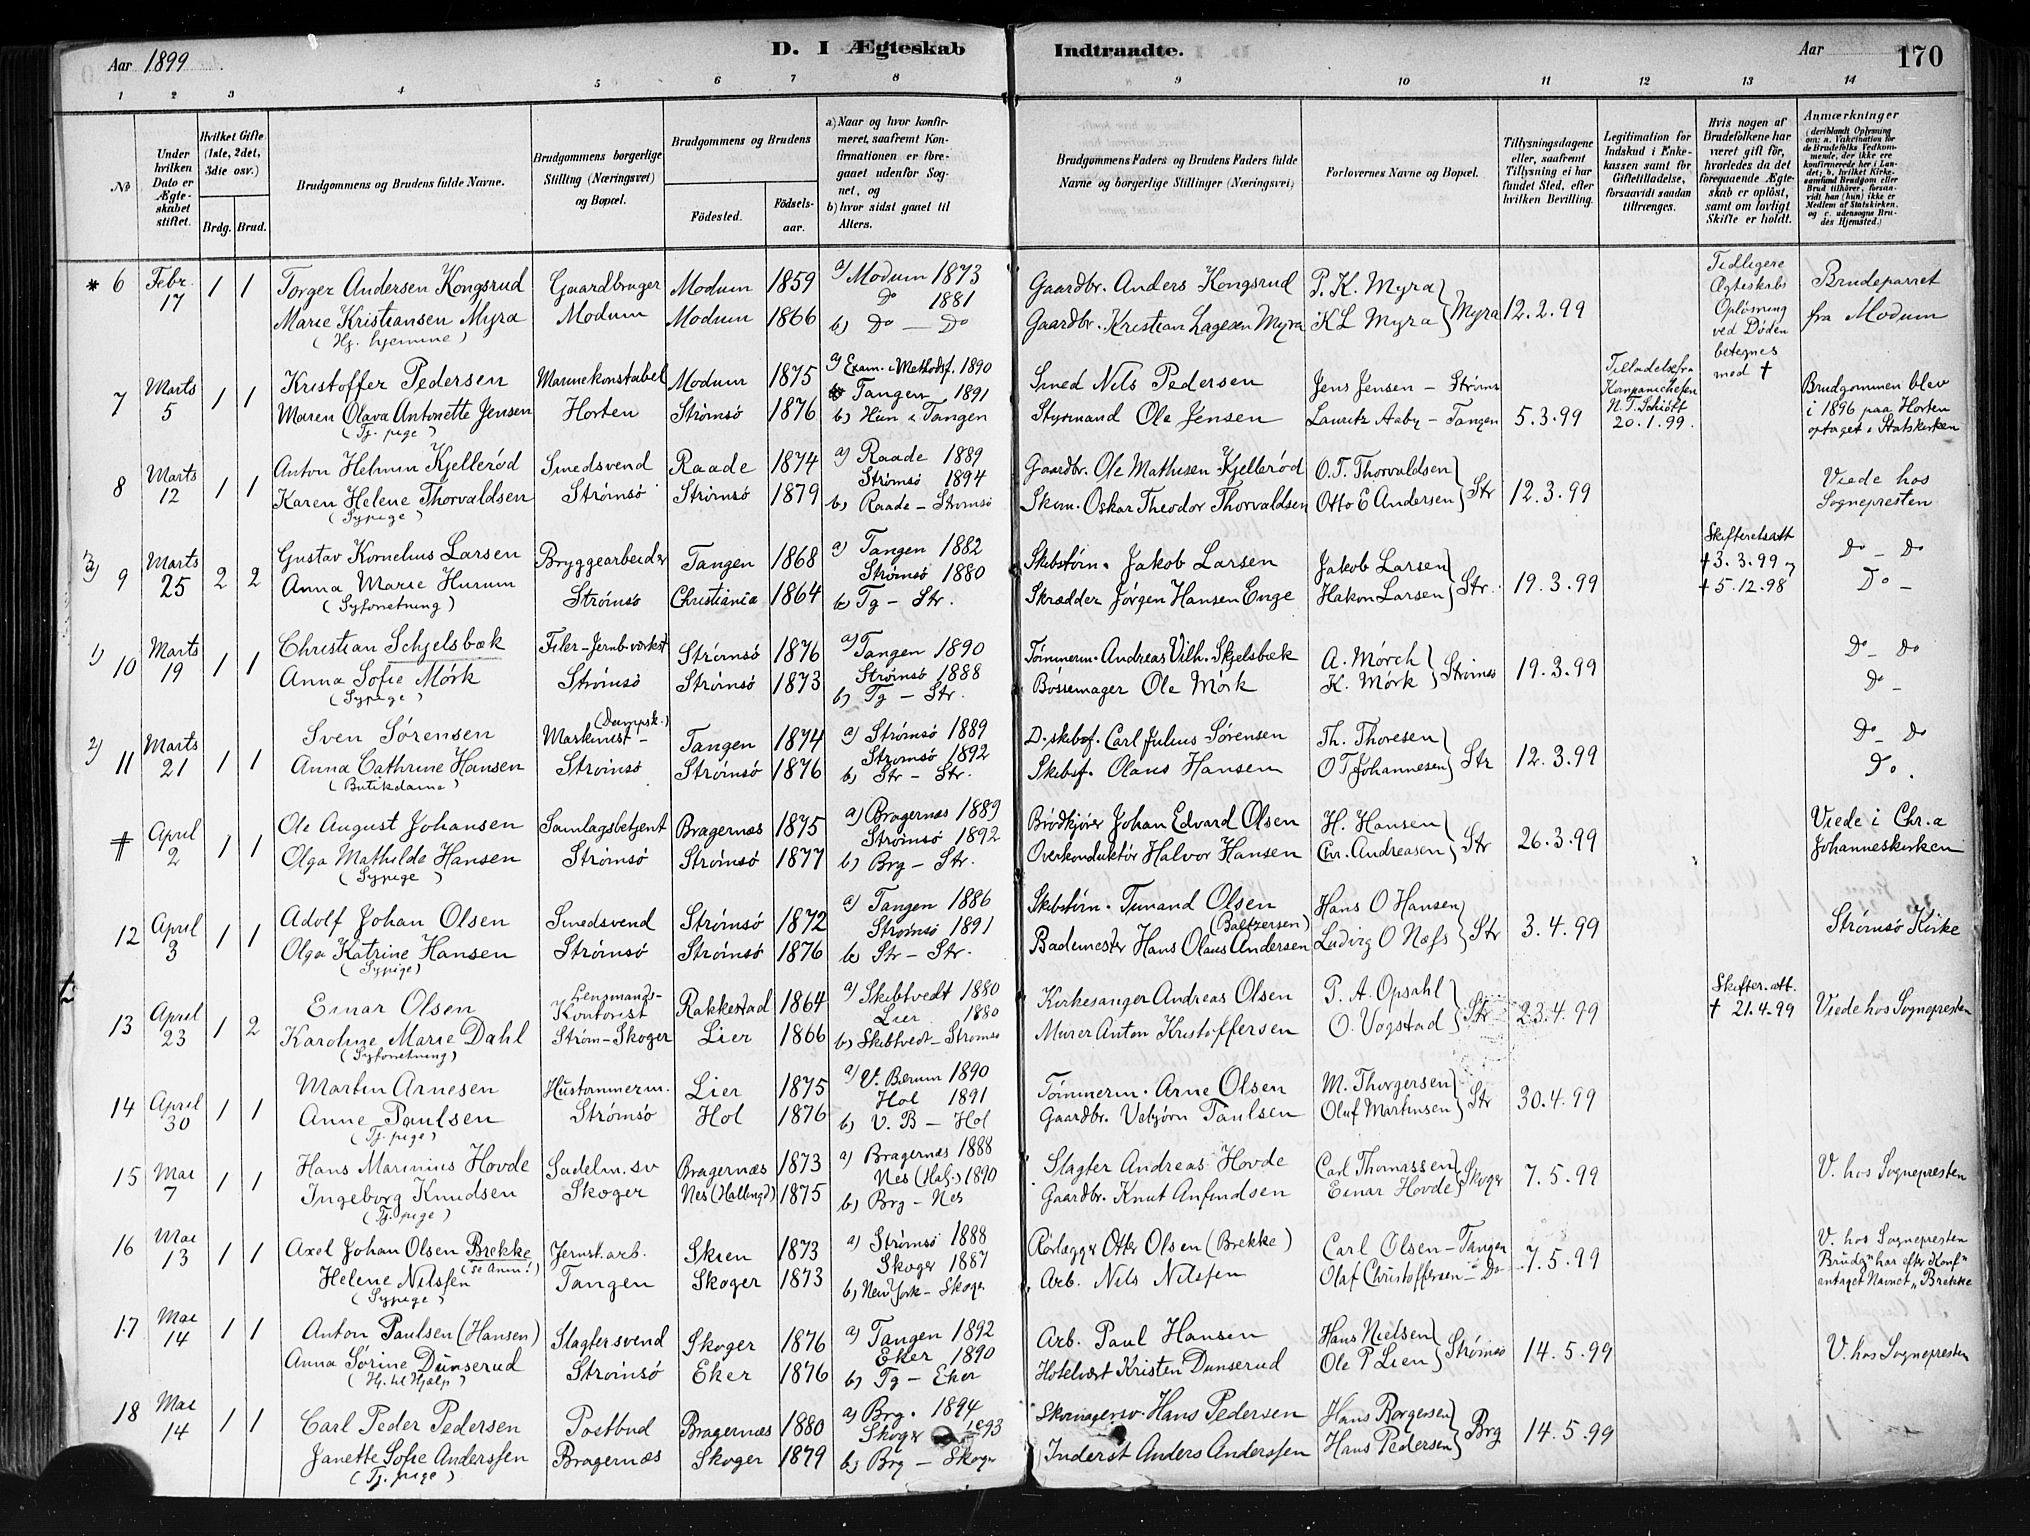 Aar 1899
D. I Ægteskab
Indtraadte.
Aar
170
1 2 3 4 5 6 7 8 9 10 11 12 13 14
№
Under hvilken Dato er Ægteskabet stiftet.
Hvilket Gifte (1ste, 2det, 3die osv.)
Brdg. Brud.
Brudgommens og Brudens fulde Navne.
Brudgommens borgerlige Stilling (Næringsvei) og Bopæl.
Brudgommens og Brudens
Födested.
Födselsaar.
a) Naar og hvor konfirmeret, saafremt Konfirmationen er foregaaet udenfor Sognet, og
b) hvor sidst gaaet til Alters.
Brudgommens Faders og Brudens Faders fulde Navne og borgerlige Stillinger (Næringsvei)
Forlovernes Navne og Bopæl.
Tillysningsdagene eller, saafremt Tillysning ei har fundet Sted, efter hvilken Bevilling.
Legitimation for Indskud i Enkekassen samt for Giftetilladelse, forsaavidt saadan tiltrænges.
Hvis nogen af Brudefolkene har været gift för, hvorledes da det foregaaende Ægteskab er oplöst, samt om lovligt Skifte er holdt.
Anmærkninger (deriblandt Oplysning om: a. Vakcination for de Brudefolks Vedkommende, der ikke ere konfirmerede her i Landet; b. hvilket Kirkesamfund Brudgom eller Brud tilhörer, forsavidt han (hun) ikke er Medlem af Statskirken, og c. udensogns Brudes Hjemsted.)
* 6 Febr. 17 1 1 Torger Andersen Kongsrud Gaardbruger Modum 1859 a) Modum 1873 Gaardbr. Anders Kongsrud P. K. Myra
Marie Kristiansen Myra Modum Modum 1866 Do 1881 Gaardbr. Kristian Lagesen Myra K L Myra } Myra 12.2.99
(Hj. hjemme) b) Do — Do
Tidligere Ægteskabs Opløsning ved Døden betegnes med †
Brudeparret fra Modum
7 Marts 5 1 1 Kristoffer Pedersen Marinekonstabel Modum 1875 a) Exam. i Methodsf. 1890 Smed Nils Pedersen Jens Jensen — Strøms
Maren Olava Antonette Jensen Horten Strømsö 1876 Tangen 1891 Styrmand Ole Jensen Lauritz Aaby — Tangen 5.3.99
(Tj. pige) b) Hun i Tangen
Tilladelse fra Kompanichefen N. T. Schiött 20.1.99.
Brudgommen blev i 1896 paa Horten optaget i Statskirken
8 Marts 12 1 1 Anton Helmin Kjellerød Smedsvend Raade 1874 a) Raade 1889 Gaardbr. Ole Mathisen Kjellerød O. T. Thorvaldsen
Karen Helene Thorvaldsen Strømsö Strømsö 1879 Strømsö 1894 Skom. Oskar Theodor Thorvaldsen Otto E Andersen } Str 12.3.99
(Sypige) b) Raade — Strømsö
Viede hos Sognepresten
3) 9 Marts 25 2 2 Gustav Kornelius Larsen Bryggearbeider Tangen 1868 a) Tangen 1882 Skibstørn. Jakob Larsen Jakob Larsen
Anna Marie Hurum Strømsö Christiania 1864 Strømsö 1880 Skrædder Jörgen Hansen Enge Hakon Larsen } Str. 19.3.99
(Syforretning) b) Tg — Str.
Skifteretsatt † 3.3.99 og † 5.12.98
Do — Do
Do —
1) 10 Marts 19 1 1 Christian Schjelsbæk Filer-Jernb.værkst Strömsö 1876 a) Tangen 1890 Tømmerm. Andreas Vilh. Skjelsbæk A. Mörch
Anna Sofie Mörk Strømsö Strömsö 1873 Strømsö 1888 Bössemager Ole Mörk K. Mörk } Strömsö 19.3.99
(Sypige) b) Tg — Str.
Do — Do
Do —
2) 11 Marts 21 1 1 Sven Sørensen (Dampsk.) Maskinist — Tangen 1874 a) Strömsö 1889 D. skibsf. Carl Julius Sørensen Th. Thoresen
Anna Cathrine Hansen Strömsö Strömsö 1876 Strömsö 1892 Skibsf. Olaus Hansen O T Johannesen } Str 12.3.99
(Butikdame) b) Str — Str.
Do — Do
Do.
# April 2 1 1 Ole August Johansen Samlagsbetjent Bragernæs 1875 a) Bragernes 1889 Brödkjörer Johan Edvard Olsen H. Hansen
Olga Mathilde Hansen Strömsö Strömsö 1877 Strömsö 1892 Overkonduktör Halvor Hansen Chr. Andreasen } Str 26.3.99
(Sypige) b) Brg — Str.
Viede i Chr.a Johanneskirken
12 April 3 1 1 Adolf Johan Olsen Smedsvend Strömsö 1872 a) Tangen 1886 Skibstørn. Timand Olsen Hans O Hansen
Olga Katrine Hansen Strömsö Strömsö 1876 Strömsö 1891 Bademester Hans Olaus Andersen (Baltzersen) Ludvig O Næss } Str 3.4.99
(Sypige) b) Str — Str.
Strömsö Kirke
13 April 23 1 2 Einar Olsen Lensmands-Kontorist Rakkestad 1864 a) Skibtvedt 1880 Kirkesanger Andreas Olsen P. A. Opsahl
Karoline Marie Dahl Ström — Skoger Lier 1866 Lier 1880 Murer Anton Kristoffersen O. Vogstad } Str 23.4.99
(Syforretning) b) Skibtvedt — Strömsö
Skifter. att. † 21.4.99
Viede hos Sognepresten
14 April 30 1 1 Martin Arnesen Hustømmerm. Lier 1875 a) V. Bærum 1890 Tömmerm. Arne Olsen M. Thorgersen
Anne Paulsen Strömsö Hol 1876 Hol 1891 Gaardbr. Vebjörn Paulsen Oluf Martinsen } Str 30.4.99
(Tj. pige) b) V. B — Hol
15 Mai 7 1 1 Hans Marinius Hovde Sadelm. sv Bragernæs 1873 a) Bragernes 1888 Slagter Andreas Hovde Carl Thomassen
Ingeborg Knudsen Skoger Nes (Hallingd) 1875 Nes (Hal.) 1890 Gaardbr. Knut Anfindsen Einar Hovde } Skoger 7.5.99
(Tj. pige) b) Brg — Nes
V. hos Sognepresten
16 Mai 13 1 1 Axel Johan Olsen Brekke (se Anm!) Jernst. arb. Skien 1873 a) Strömsö 1888 Rørlægger Otter Olsen (Brekke) Carl Olsen — Tangen
Helene Nilssen Tangen Skoger 1873 Skoger 1887 Arb. Nils Nilssen Olaf Christoffersen — Do 7.5.99
(Sypige) b) New York — Skoger
V. hos Sognepresten Brudg har efter Konf. antaget Navnet „Brekke
17 Mai 14 1 1 Anton Paulsen (Hansen) Slagtersvend Skoger 1876 a) Tangen 1892 Arb. Paul Hansen Hans Nielsen
Anna Sörine Dunserud Strömsö Eker 1876 Eker 1890 Hotelvært Kristen Dunserud Ole P Lien } Strömsö 14.5.99
(Hj. til Hjælp) b) Tg — Eker
V. hos Sognepresten
18 Mai 14 1 1 Carl Peder Pedersen Postbud Bragernæs 1880 a) Brg. 1894 Skomagersv. Hans Pedersen Hans Borgersen
Janette Sofie Anderssen Bragernæs Skoger 1879 Skoger 1893 Inderst Anders Anderssen Hans Pedersen } Brg 14.5.99
(Tj. pige) b) Brg — Skoger